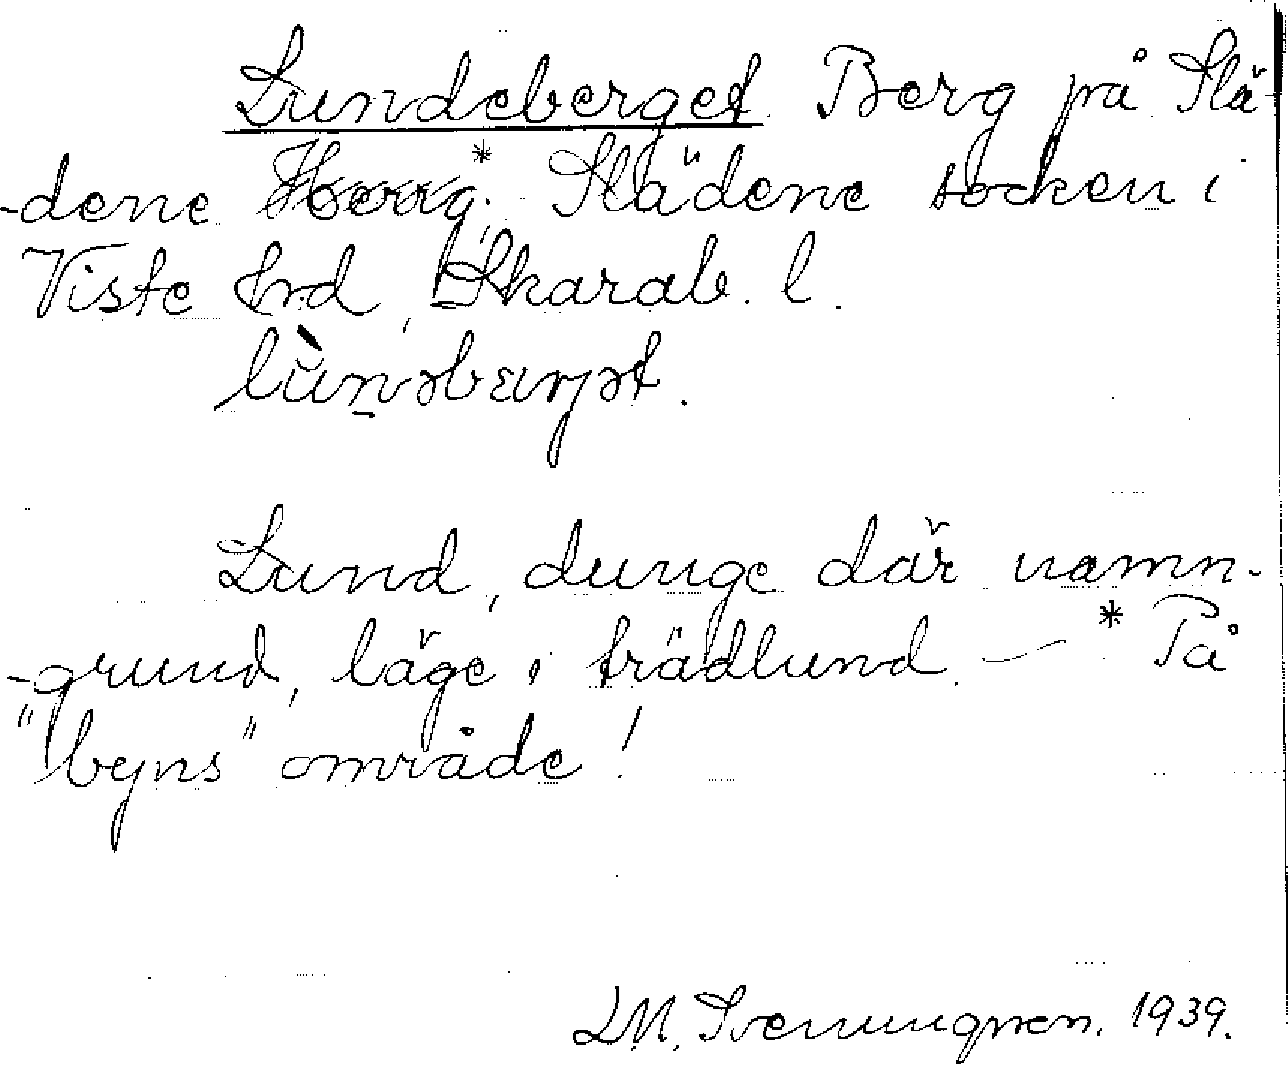 Lundeberget. Berg på Slä-
-dene * Slädene socken i
Viste hrd, Skarab. l.
Lund, dunge där namn-
-grund, läge i trädlund. — * På
"byns" område!
L.M. Svenungsson. 1939.